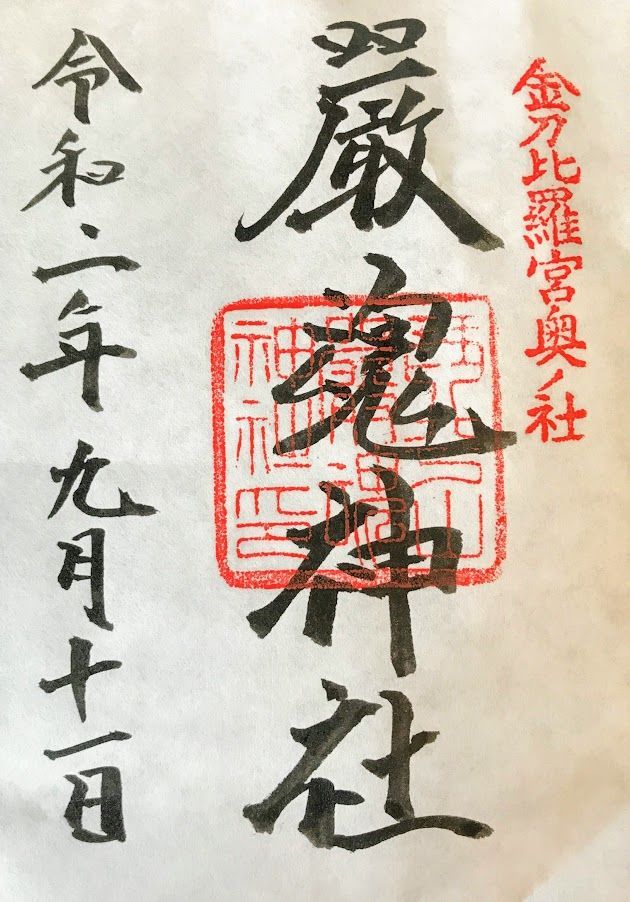 金刀比羅宮奥ノ社
厳魂神社
令和二年九月十一日